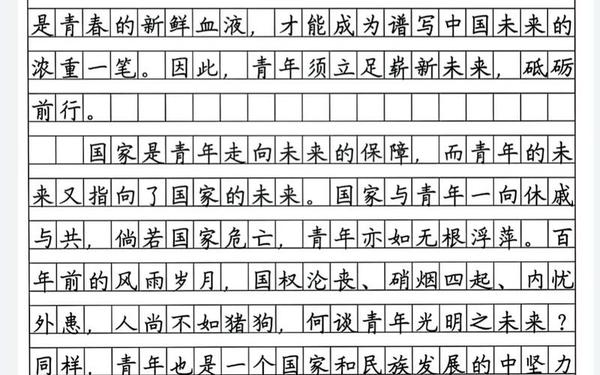 是青春的新鲜血液，才能成为谱写中国未来的
浓重一笔。因此，青年须立足崭新未来，砥砺
前行。
国家是青年走向未来的保障，而青年的未
来又指向了国家的未来。国家与青年一向休戚
与共，倘若国家危亡，青年亦如无根浮萍。百
年前的风雨岁月，国权沦丧、硝烟四起、内忧
外患，人尚不如猪狗，何谈青年光明之未来？
同样，青年也是一个国家和民族发展的中坚力